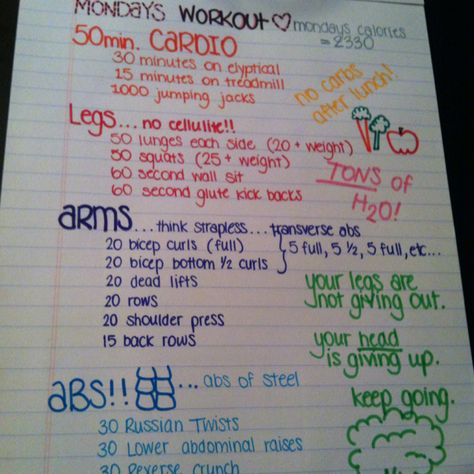 MONDAYS WORKOUT mondays calories
= 2330
50min. CARDIO
30 minutes on elyptical
15 minutes on treadmill
1000 jumping jacks
no carbs
after lunch!
Legs... no cellulite!!
50 lunges each side (20 + weight)
50 squats (25 + weight)
60 second wall sit
60 second glute kick backs
TONS of
H2O!
ARMS...think strapless...transverse abs
20 bicep curls (full)
20 bicep bottom 1/2 curls
} 5 full, 5 1/2, 5 full, etc...
20 dead lifts
20 rows
20 shoulder press
15 back rows
your legs are
not giving out.
your head
is giving up.
keep going.
ABS!! ...abs of steel
30 Russian Twists
30 Lower abdominal raises
30 Reverse crunch